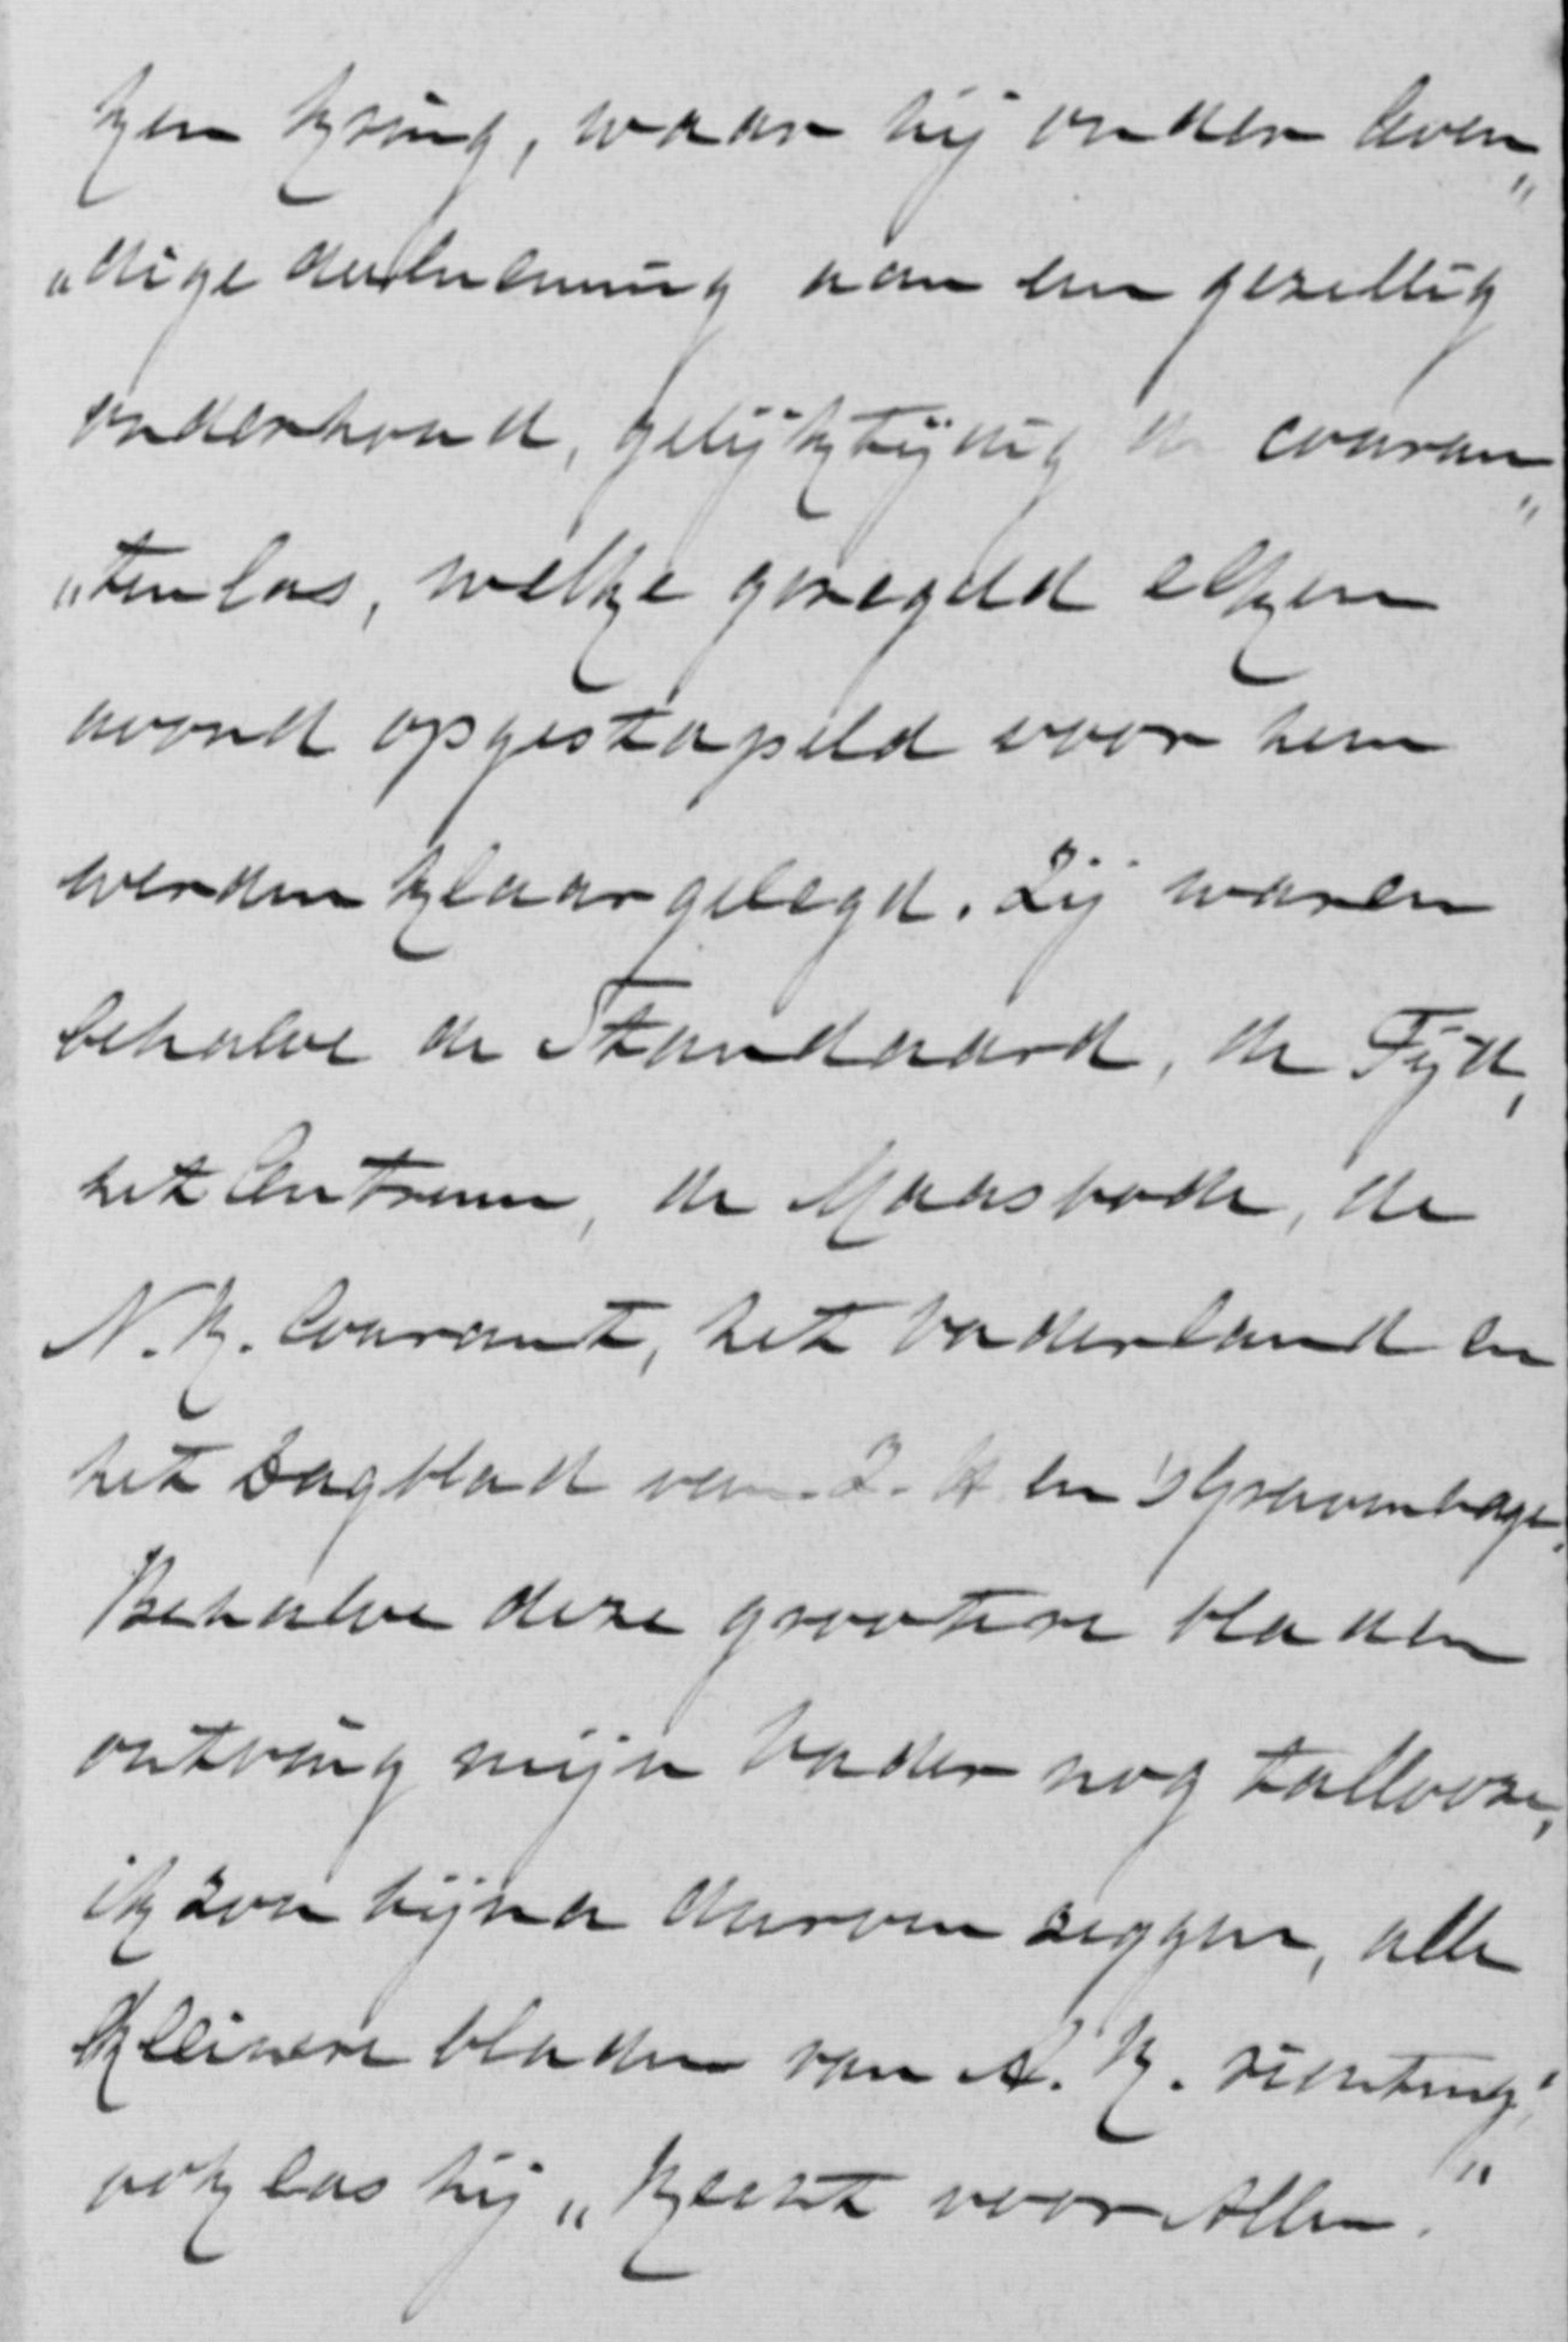 ken kring, waar hij onder leven„
„dige deelneming aan een gezellig
onderhoud, gelijktijdig de couran„
„ten las, welke geregeld elken
avond opgestapeld voor hem
werden klaargelegd. Zij waren
behalve de Standaard, de Tijd,
het Centrum, de Maasbode, de
N. R. Courant, het Vaderland en
het Dagblad van Z. H en 'sGravenhage.
Behalve deze grootere bladen
ontving mijn Vader nog tallooze,
ik zou bijna durven zeggen, alle
kleinere bladen van A. R. richting;
ook las hij „Recht voor Allen."